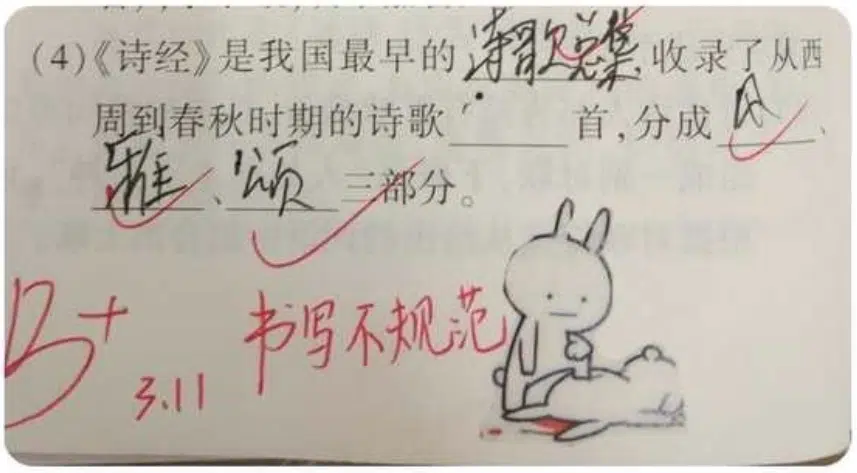 (4)《诗经》是我国最早的 诗歌总集,收录了从西
周到春秋时期的诗歌______首,分成 风、
雅、颂 三部分。
B+ 3.11 书写不规范